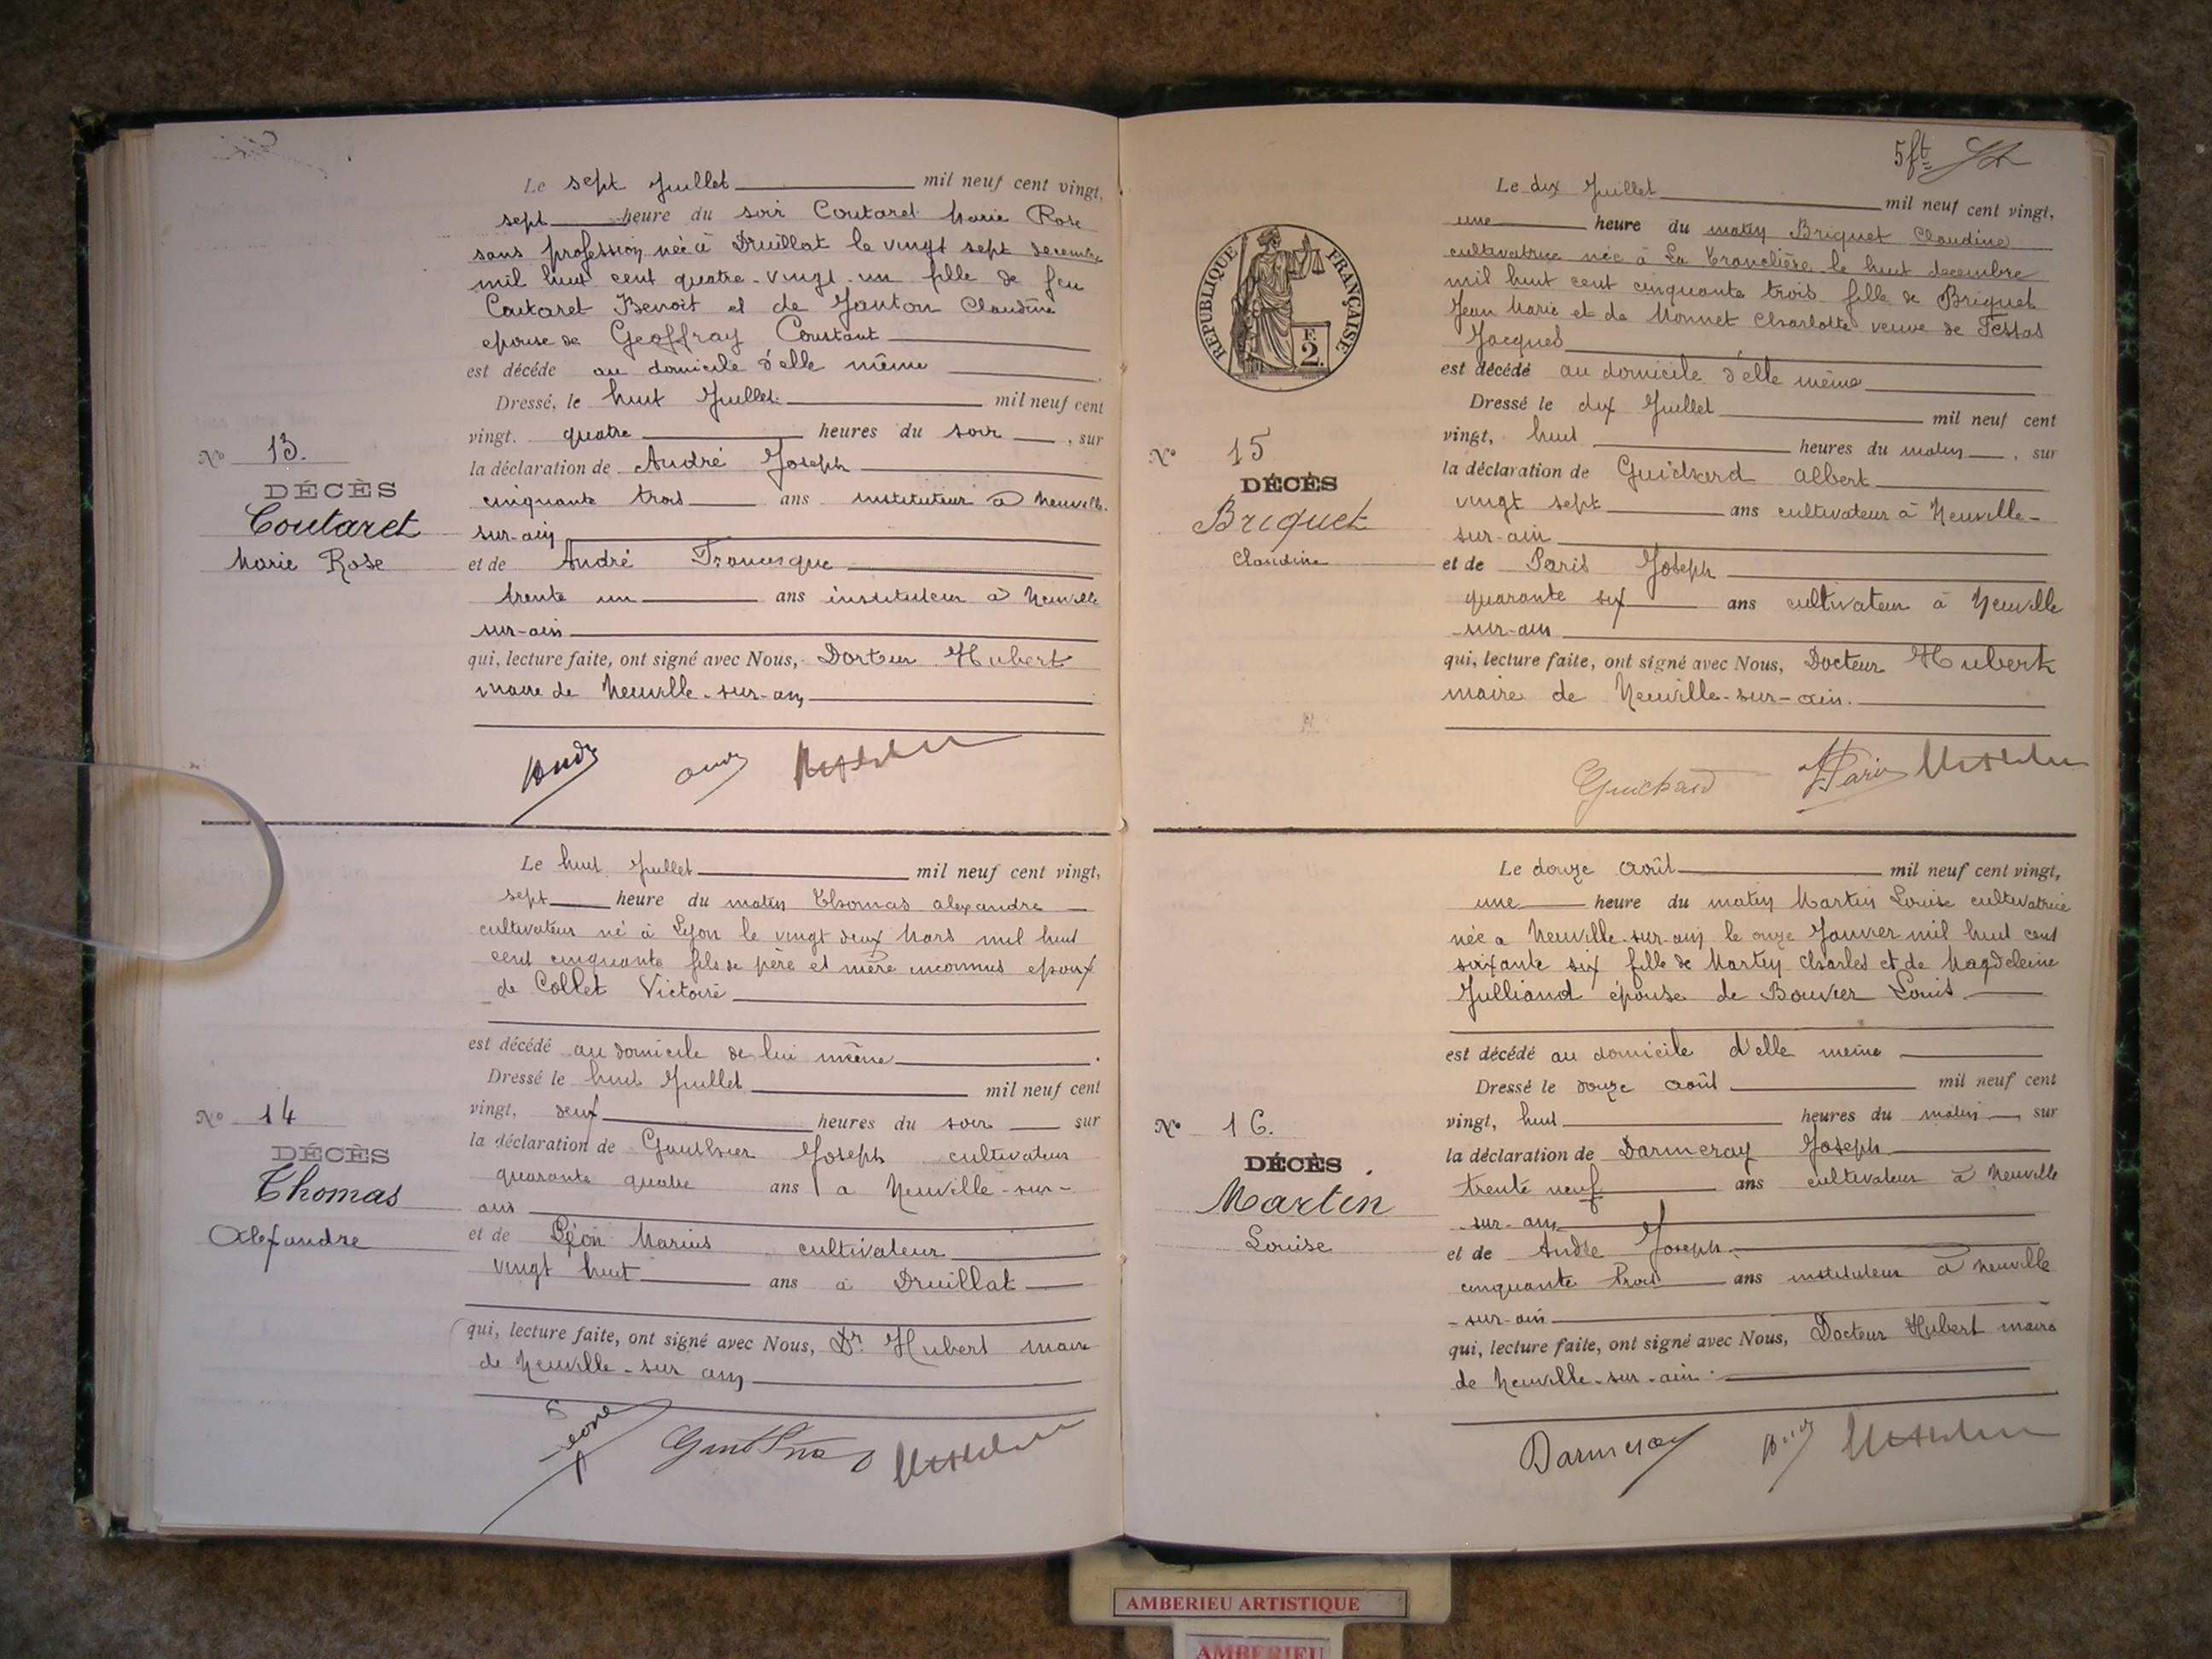 Le sept Juillet mil neuf cent vingt,
sept heure du soir Coutaret Marie Rose
sans profession, née à Druillat le vingt sept decembre
mil huit cent quatre-vingt-un fille de feu
Coutaret Benoit et de Janton Claudine
epouse de Geoffray Constant
est décédé au domicile d'elle même
Dressé, le huit Juillet mil neuf cent
vingt. quatre heures du soir , sur
la déclaration de André Joseph
cinquante trois ans instituteur à Neuville.
sur-ain
et de André
trente un ans instituteur à Neuville
sur-ain
qui, lecture faite, ont signé avec Nous, Docteur Hubert
maire de Neuville-sur-ain
No 13.
DÉCÈS
Coutaret
Marie Rose
Le huit Juillet mil neuf cent vingt,
sept heure du matin Thomas alexandre
cultivateur né à Lyon le vingt deux Mars mil huit
cent cinquante fils de père et mère inconnus epoux
de Collet Victoire
est décédé au domicile de lui même
Dressé le huit Juillet mil neuf cent
vingt, deux heures du soir sur
la déclaration de Gauthier Joseph cultivateur
quarante quatre ans a Neuville-sur-
ain
et de Léon Marius cultivateur
vingt huit ans à Druillat
qui, lecture faite, ont signé avec Nous, Dr. Hubert maire
de Neuville-sur ain
No 14
DÉCÈS
Thomas
Alexandre
5ft
Le dix Juillet mil neuf cent vingt,
une heure du matin Briquet Claudine
cultivatrice née à La Tranclière le huit decembre
mil huit cent cinquante trois fille de Briquet
Jean Marie et de Monnet Charlotte veuve de Tessas
Jacques
est décédé au domicile d'elle même
Dressé le dix Juillet mil neuf cent
vingt, huit heures du matin , sur
la déclaration de Guichard albert
vingt sept ans cultivateur à Neuville-
sur-ain
et de Paris Joseph
quarante six ans cultivateur à Neuville
-sur-ain
qui, lecture faite, ont signé avec Nous, Docteur Hubert
maire de Neuville-sur-ain.
Guichard Paris
RÉPUBLIQUE FRANÇAISE
F.
2.
No 15
DÉCÈS
Briquet
Claudine
Le douze août mil neuf cent vingt,
une heure du matin Martin Louise cultivatrice
née a Neuville-sur-ain le onze Janvier mil huit cent
soixante six fille de Martin Charles et de Magdeleine
Julliand épouse de Bouvier Louis
est décédé au domicile d'elle meme
Dressé le douze août mil neuf cent
vingt, huit heures du matin , sur
la déclaration de Darmeray Joseph
trente neuf ans cultivateur à Neuville
-sur-ain
et de André Joseph
cinquante trois ans instituteur à Neuville
-sur-ain
qui, lecture faite, ont signé avec Nous, Docteur Hubert maire
de Neuville-sur-ain.
Darmeray
No 16.
DÉCÈS
Martin
Louise
AMBERIEU ARTISTIQUE
AMBERIEU